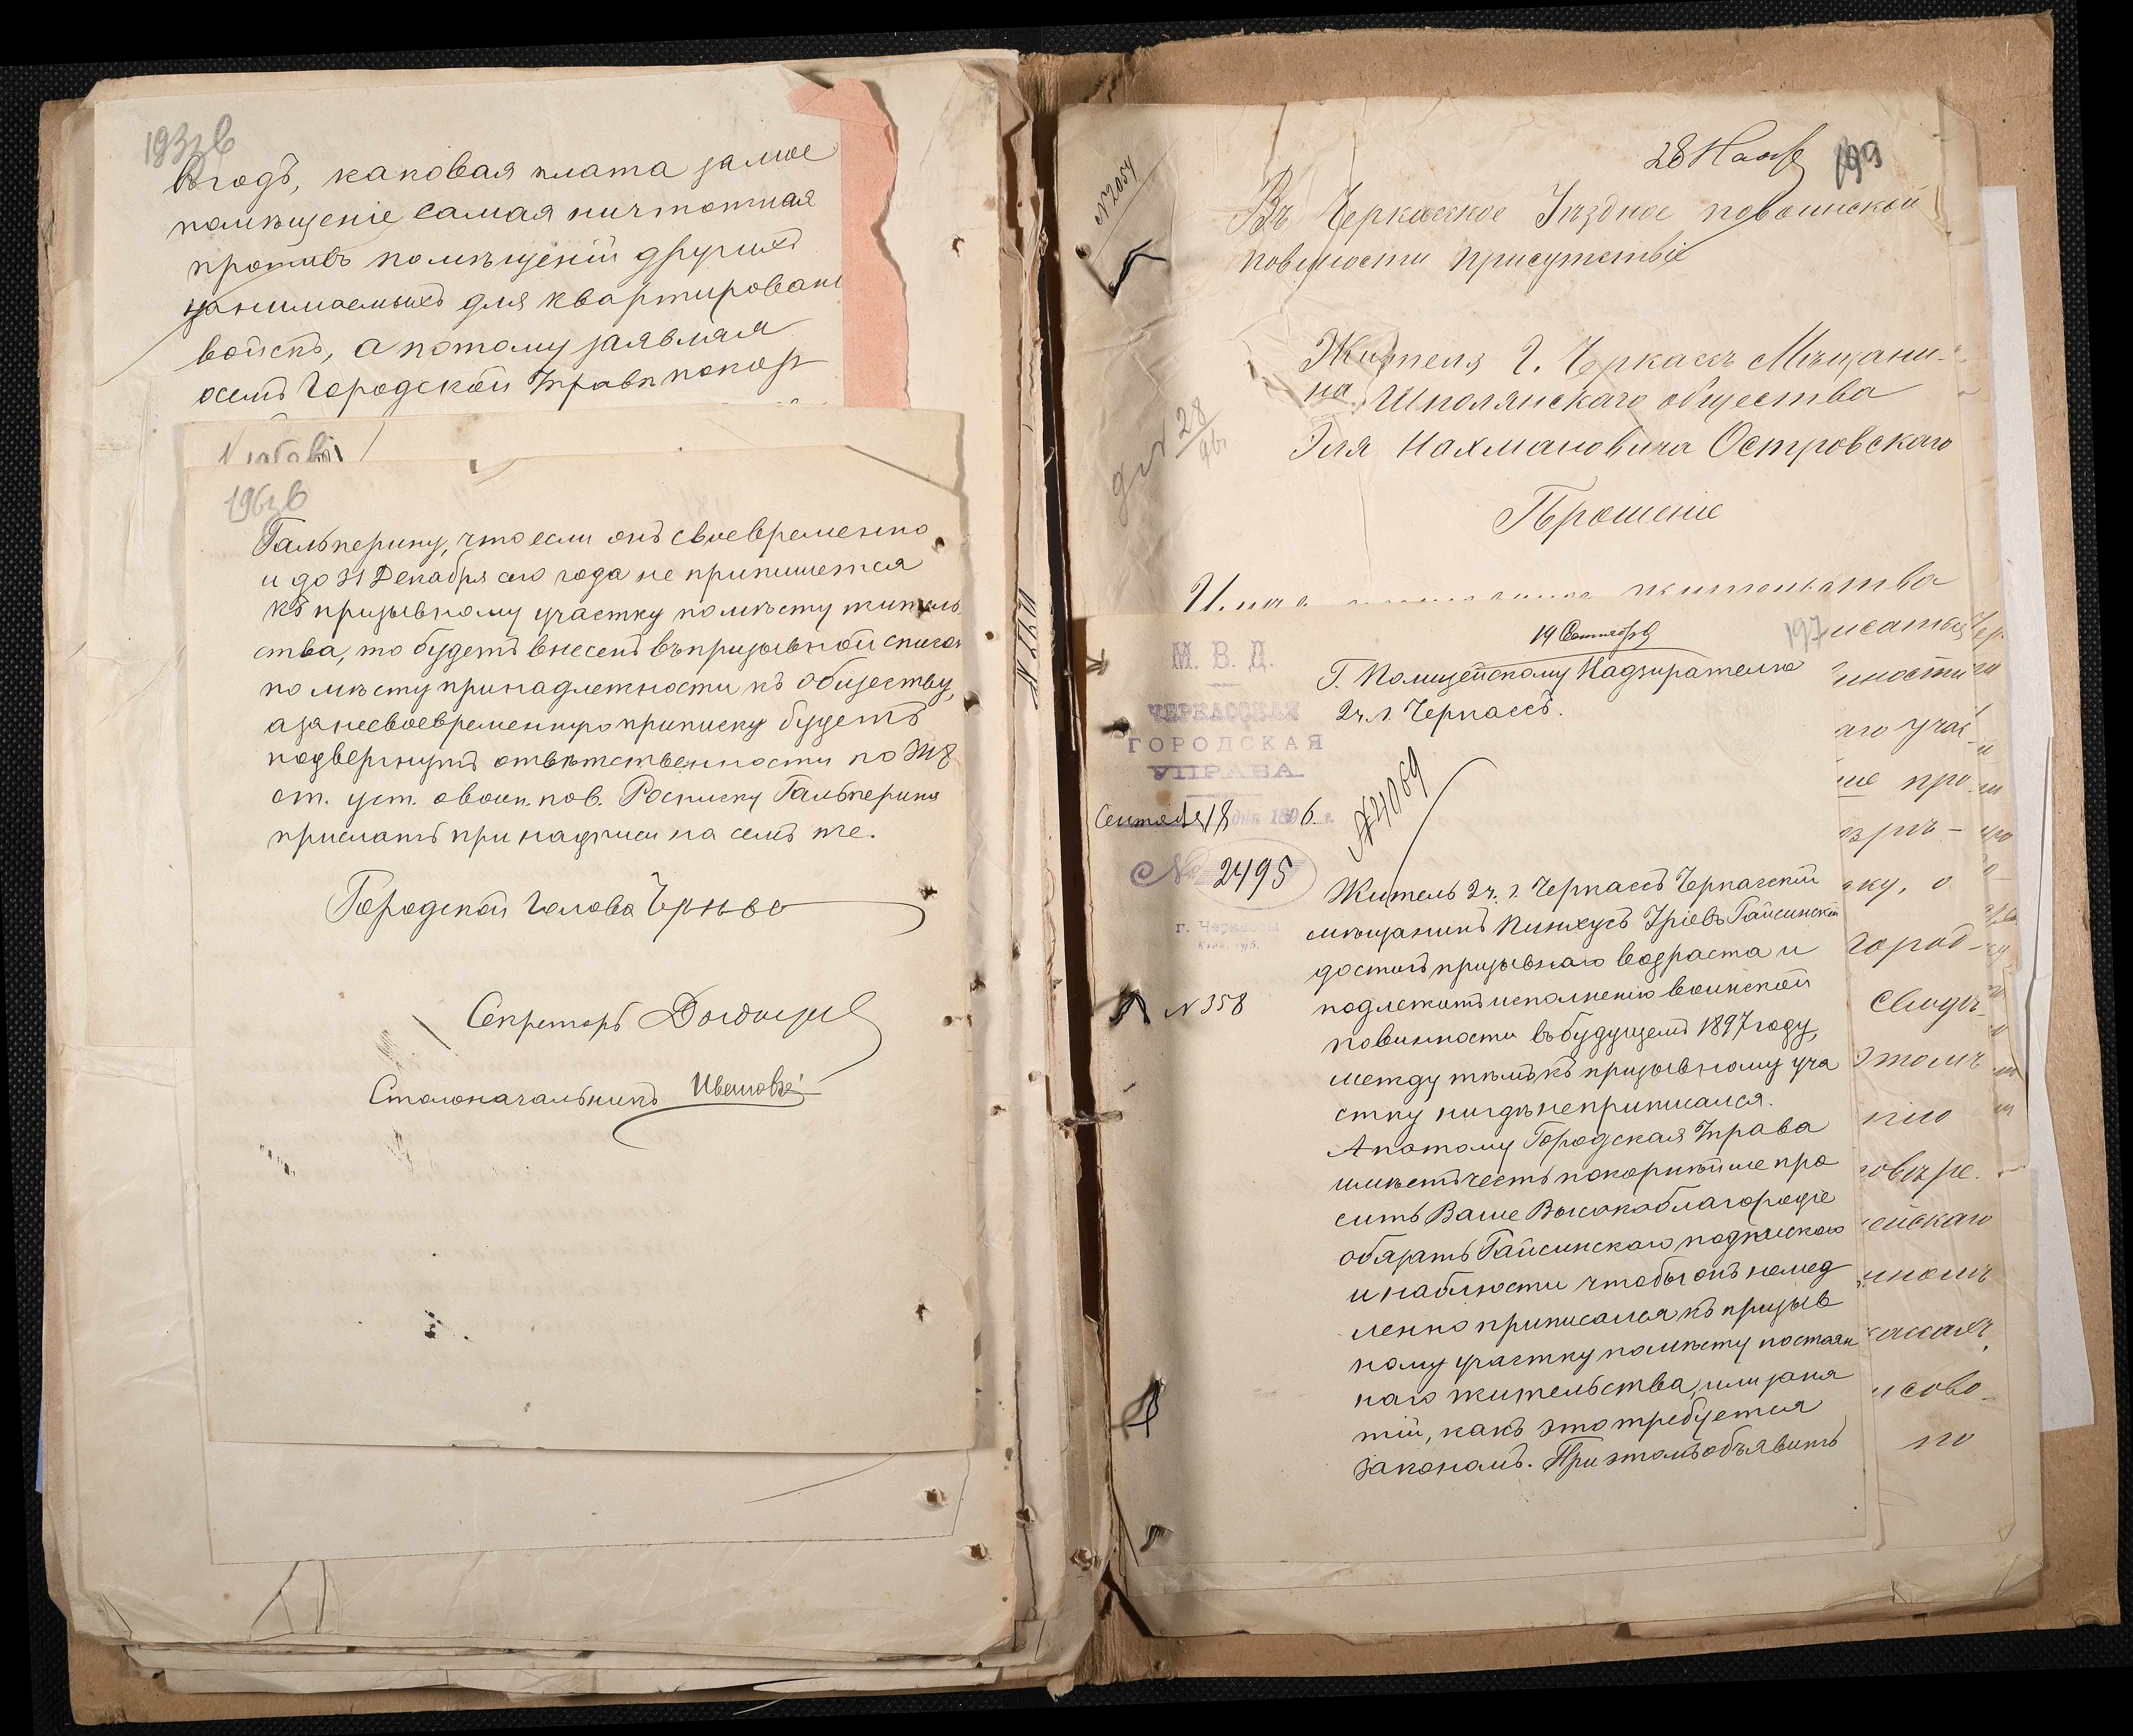 193 об
въ годъ, каковая плата за мое
помѣщеніе самая ничтотная
противъ помѣщеній другихъ
занимаемыхъ для квартирован
войскъ, а потому заявляя
о семъ Городской Управѣ покор
196 об
Гальперину, что если онъ своевременно
и до 31 Декабря сего года не припишется
къ призывному участку по мѣсту житель
ства, то будетъ внесенъ въ призывной списокъ
по мѣсту принадлежности къ обществу,
а за несвоевременную приписку будетъ
подвергнутъ отвѣтственности по
ст. уст. о воин. пов. Росписку Гальперина
прислать при надписи на семъ же.
Городской Голова
Секретарь
Столоначальникъ
N 2054
28 Нояб
199
Въ Черкасское Уѣздное по воинской
повинности присутствіе
Жителя г. Черкассъ Мѣщани-
на Шполянскаго общества
Эля Нахмановича Островскаго
Прошеніе
жительства
19 Сентября
197
М. В. Д.
ЧЕРКАССКАЯ
ГОРОДСКАЯ
УПРАВА
Сентября 18 дня 1896 г.
№ 2495
г. Черкассы
N 358
N 4069
Г. Полицейскому Надзирателю
2 ч. г. Черкассъ.
Житель 2 ч. г. Черкассъ Черкасскій
мѣщанинъ Пинхусъ Уріевъ Гайсинскій
достигъ призывнаго возраста и
подлежитъ исполненію воинской
повинности въ будущемъ 1897 году,
между тѣмъ къ призывному уча
стку нигдѣ не приписался.
А потому Городская Управа
имѣетъ честь покорнѣйше про
сить Ваше Высокоблагородіе
обязать Гайсинскаго подпискою
и наблюсти чтобы онъ немед
ленно приписался къ призыв
ному участку по мѣсту постоян
наго жительства, или заня
тій, какъ это требуется
закономъ. При этомъ объявить